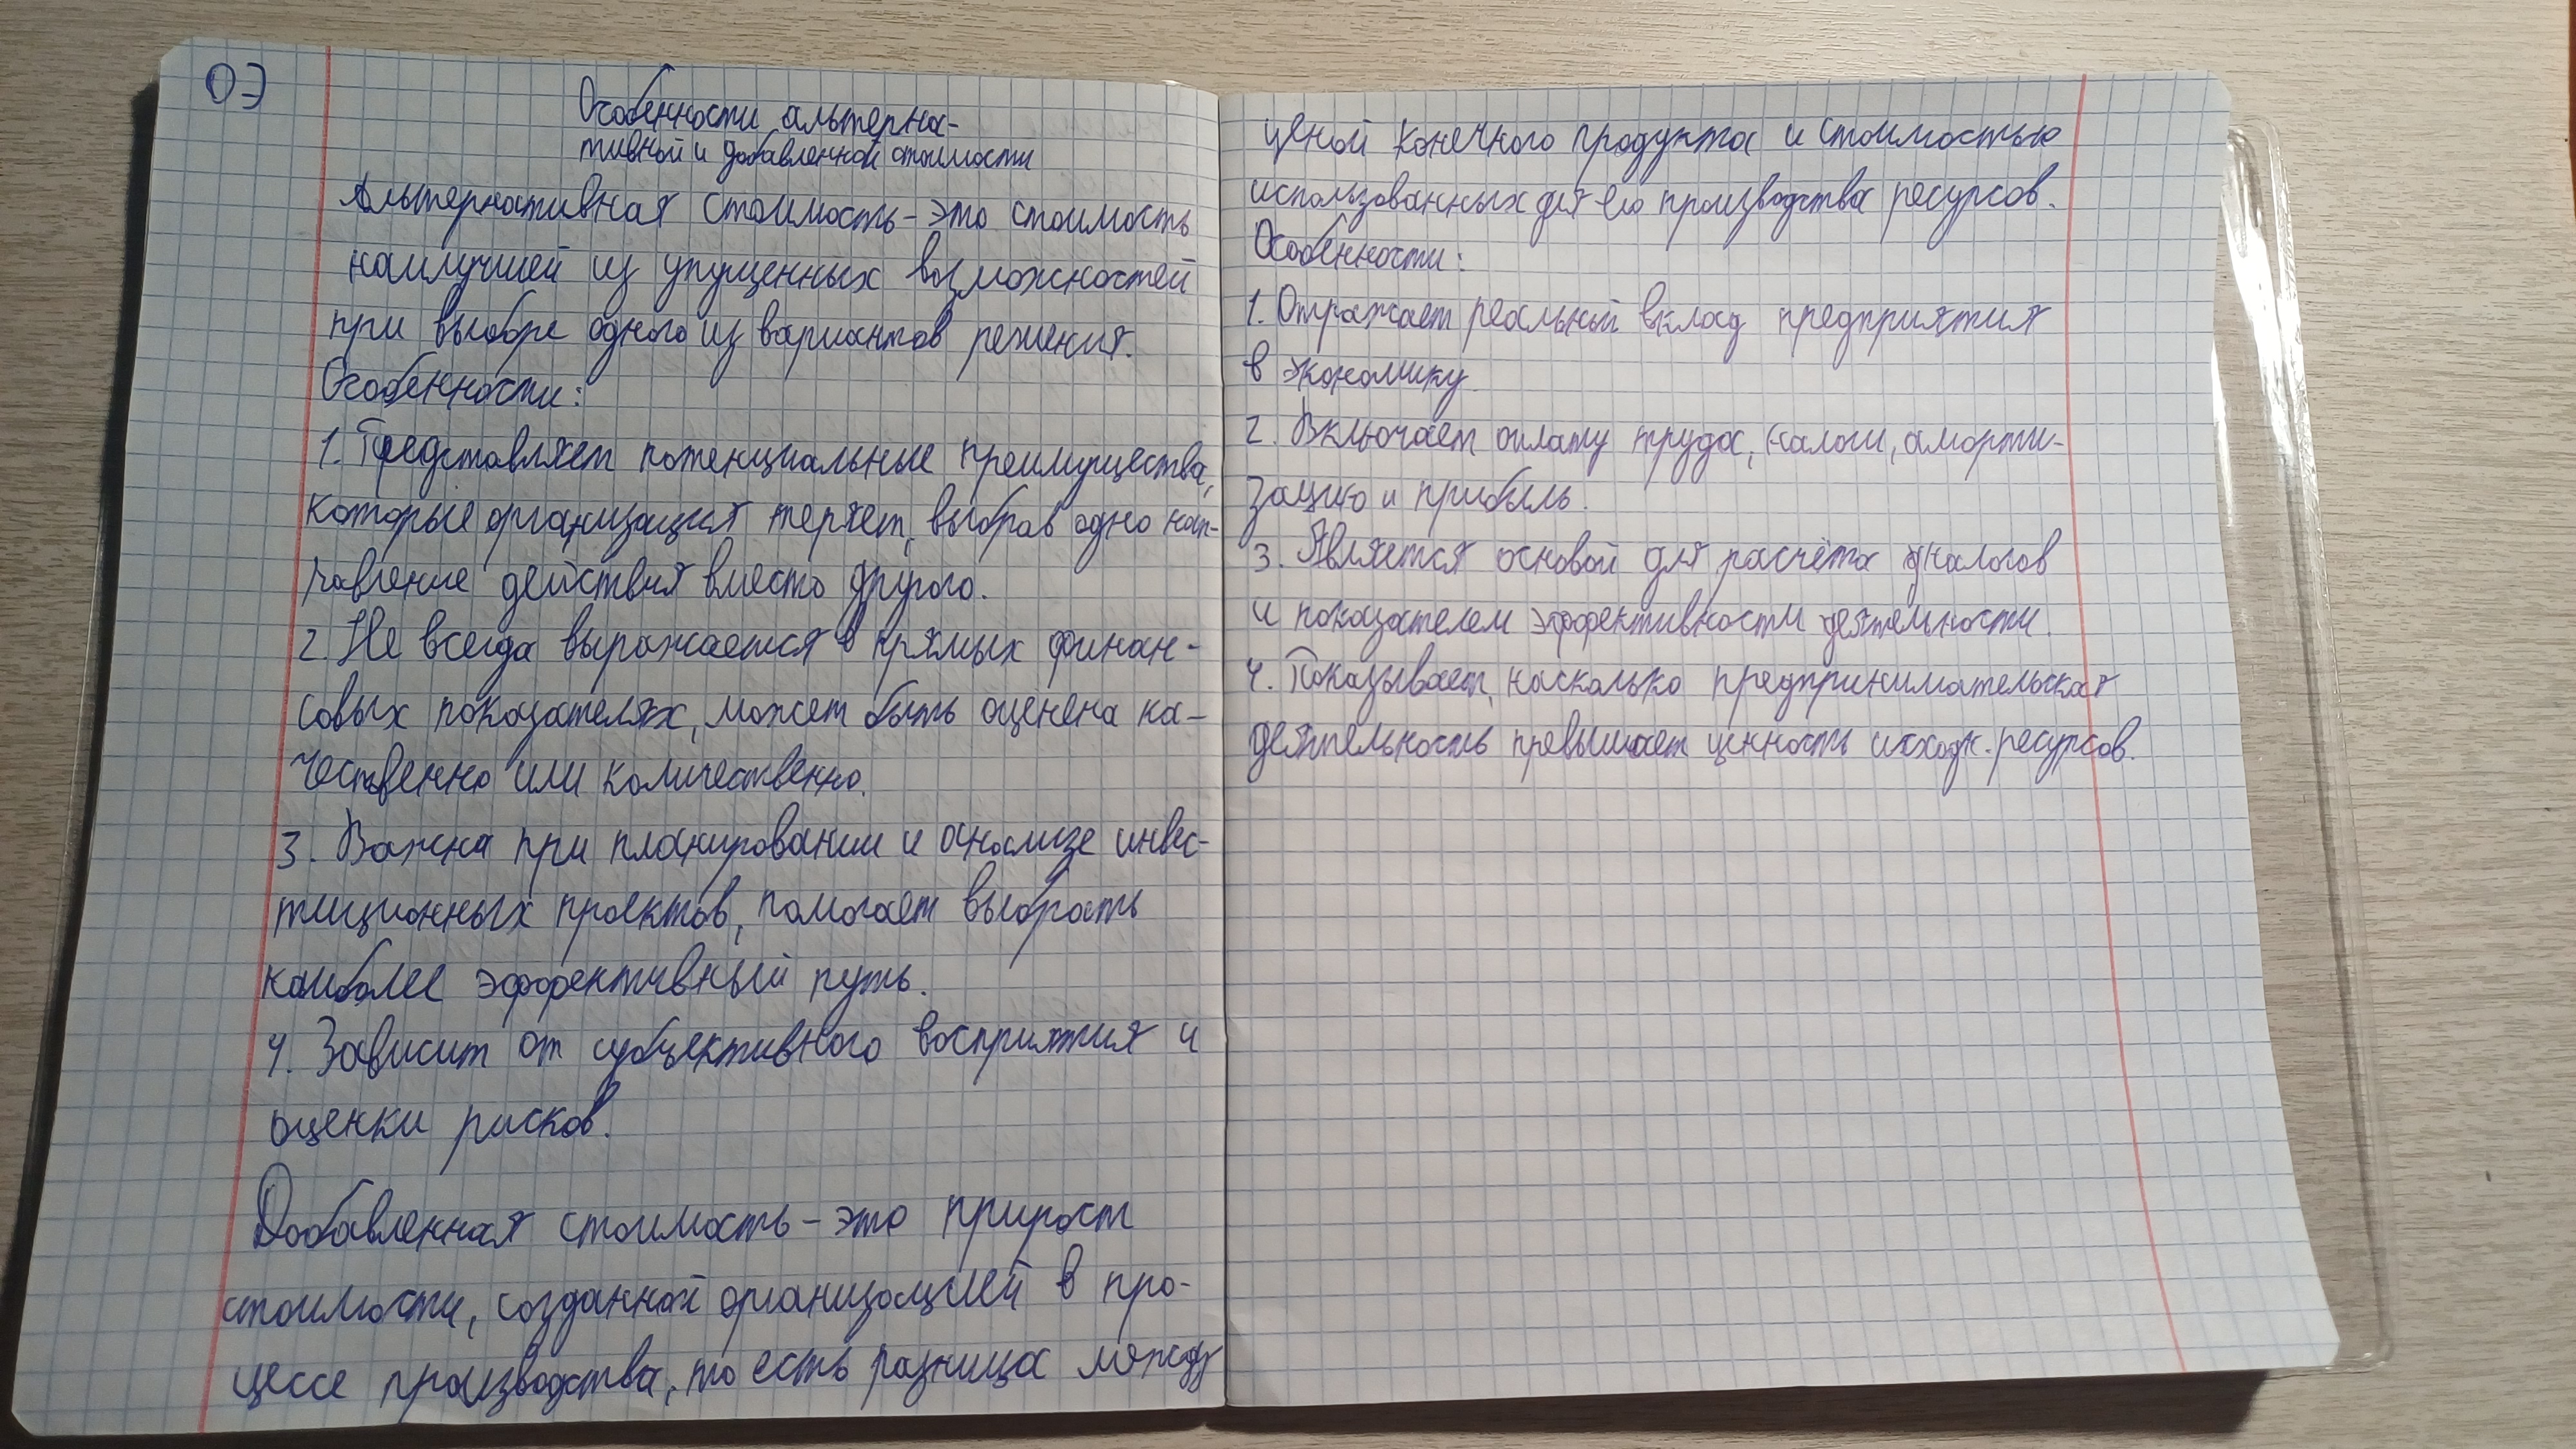 ОЭ
Особенности альтерна-
тивной и добавленной стоимости
Альтернативная стоимость - это стоимость
наилучшей из упущенных возможностей
при выборе одного из вариантов решения.
Особенности:
1. Представляет потенциальные преимущества,
которые организация теряет, выбрав одно нап-
равление действия вместо другого.
2. Не всегда выражается в прямых финан-
совых показателях, может быть оценена ка-
чественно или количественно.
3. Важна при планировании и анализе инвес-
тиционных проектов, помогает выбрать
наиболее эффективный путь.
4. Зависит от субъективного восприятия и
оценки рисков.
Добавленная стоимость - это прирост
стоимости, созданной организацией в про-
цессе производства, то есть разница между
ценой конечного продукта и стоимостью
использованных для его производства ресурсов.
Особенности:
1. Отражает реальный вклад предприятия
в экономику.
2. Включает оплату труда, налоги, аморти-
зацию и прибыль.
3. Является основой для расчёта налогов
и показателем эффективности деятельности.
4. Показывает, насколько предпринимательская
деятельность превышает ценность исходн. ресурсов.